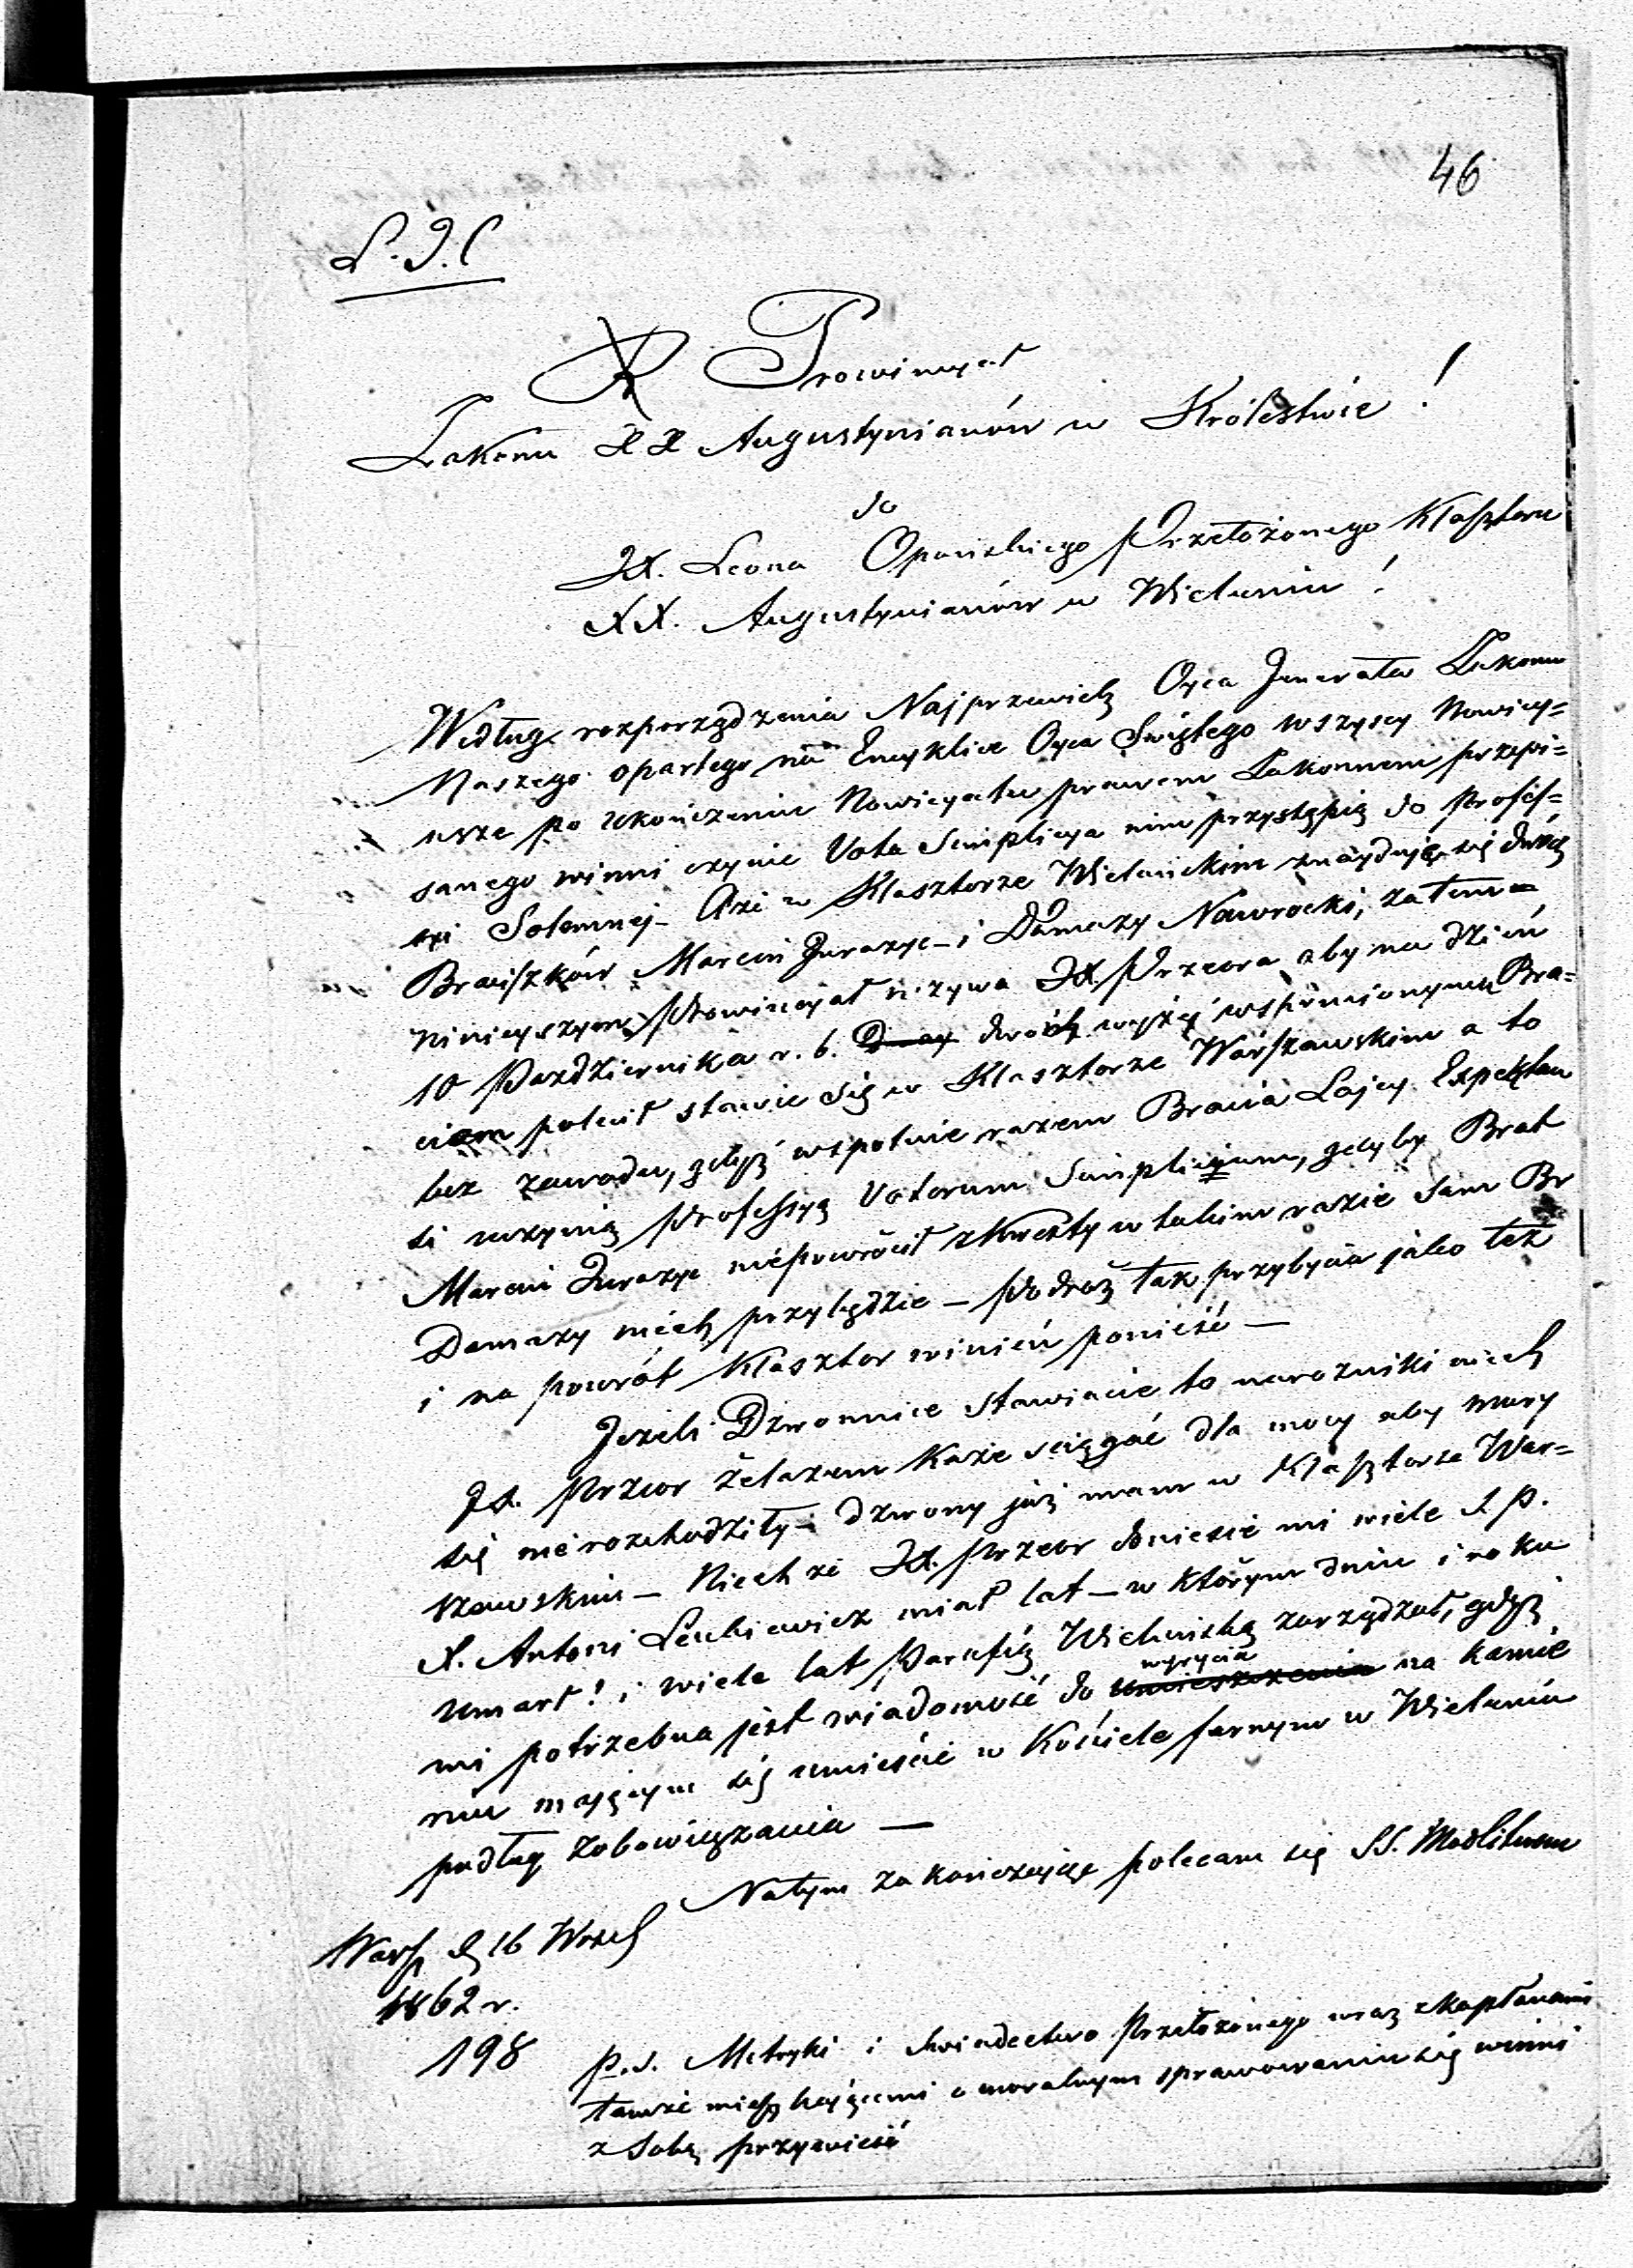 46
L.J.C
X Prowincyał
Zakonu XX Augustynianów w Królestwie!
do
JX. Leona Opońskiego Przełożonego Klasztoru
XX. Augustynianów w Wieluniu!
Według rozporządzenia Najprzewieleb Oyca Jenerała Zakonu
Naszego opartego na Encyklice Oyca Swiętego wszyscy Nowicy=
usze po ukończeniu Nowicyatu prawem Zakonnem przepi=
sanego winni czynic Vota Simplicya nim przystąpią do Profes=
syi Solemnej- Azé w Klasztorze Wieluńskim znaydują się dwóch
Braciszków Marcin Jurazyc- i Damazy Nawrocki, zatem
Ninieyszym Prowincyał wzywa JX. Przeora aby na dzień
10 Pazdziernika r. b. dwóch wyżéj wspomionym Bra=
ciom polecił stawic się w Klasztorze Warszawskim a to
bez zawodu, gdyż wspolnie razem Bracia Lajcy Expektan
ci uczynią Professyą Votorum Simplicium, gdyby Brat
Marcin Jurazyc niepowrócił z Kwesty w takim razie sam Br
Damazy niech przybędzie - Podróż tak przybycia jako też
i na powrót Klasztor winień ponieść -
Jezeli Dzwonnice stawiacie to narozniki niech
JX. Przeor żelazem każe sciągać dla mocy aby mury
się nierozchodziły- dzwony już mam w Klasztorze War=
szawskim - Niech że JX. Przeor doniesie mi wiele S. P.
X. Antoni Leukiewicz miał lat - w którym dniu i roku
umarł! i wiele lat Parafią Wieluńską zarządzał, gdyż
mi potrzebna jest wiadomość do umieszczenia wyrycia na kamie
niu mającym się umieścić w Kościele farnym w Wieluniu
podług zobowiązania -
Natym zakończając polecam się SS. Modlitwom
Warsz d 16 Wrześ
1862 r.
198
P.S. Metryki i Swiadectwo Przełożonego wraz z Kapłanami
tamże mieszkającemi o moralnym sprawowaniu się winni
z Sobą przywieść